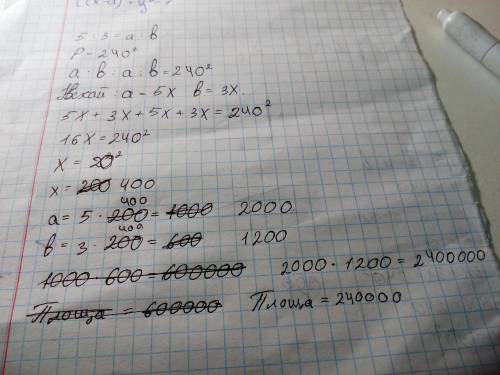 5 : 3 = а : в
P - 240²
а · в : а : в = 240²
Нехай : а - 5x в = 3x.
5x + 3x + 5x + 3x = 240²
16x = 240²
x = 20²
x = 200 400
400
а = 5 · 200 = 1000 2000
400
в = 3 · 200 = 600 1200
1000 · 600 = 600000 2000 · 1200 = 2400000
Площа = 600000 Площа = 240000